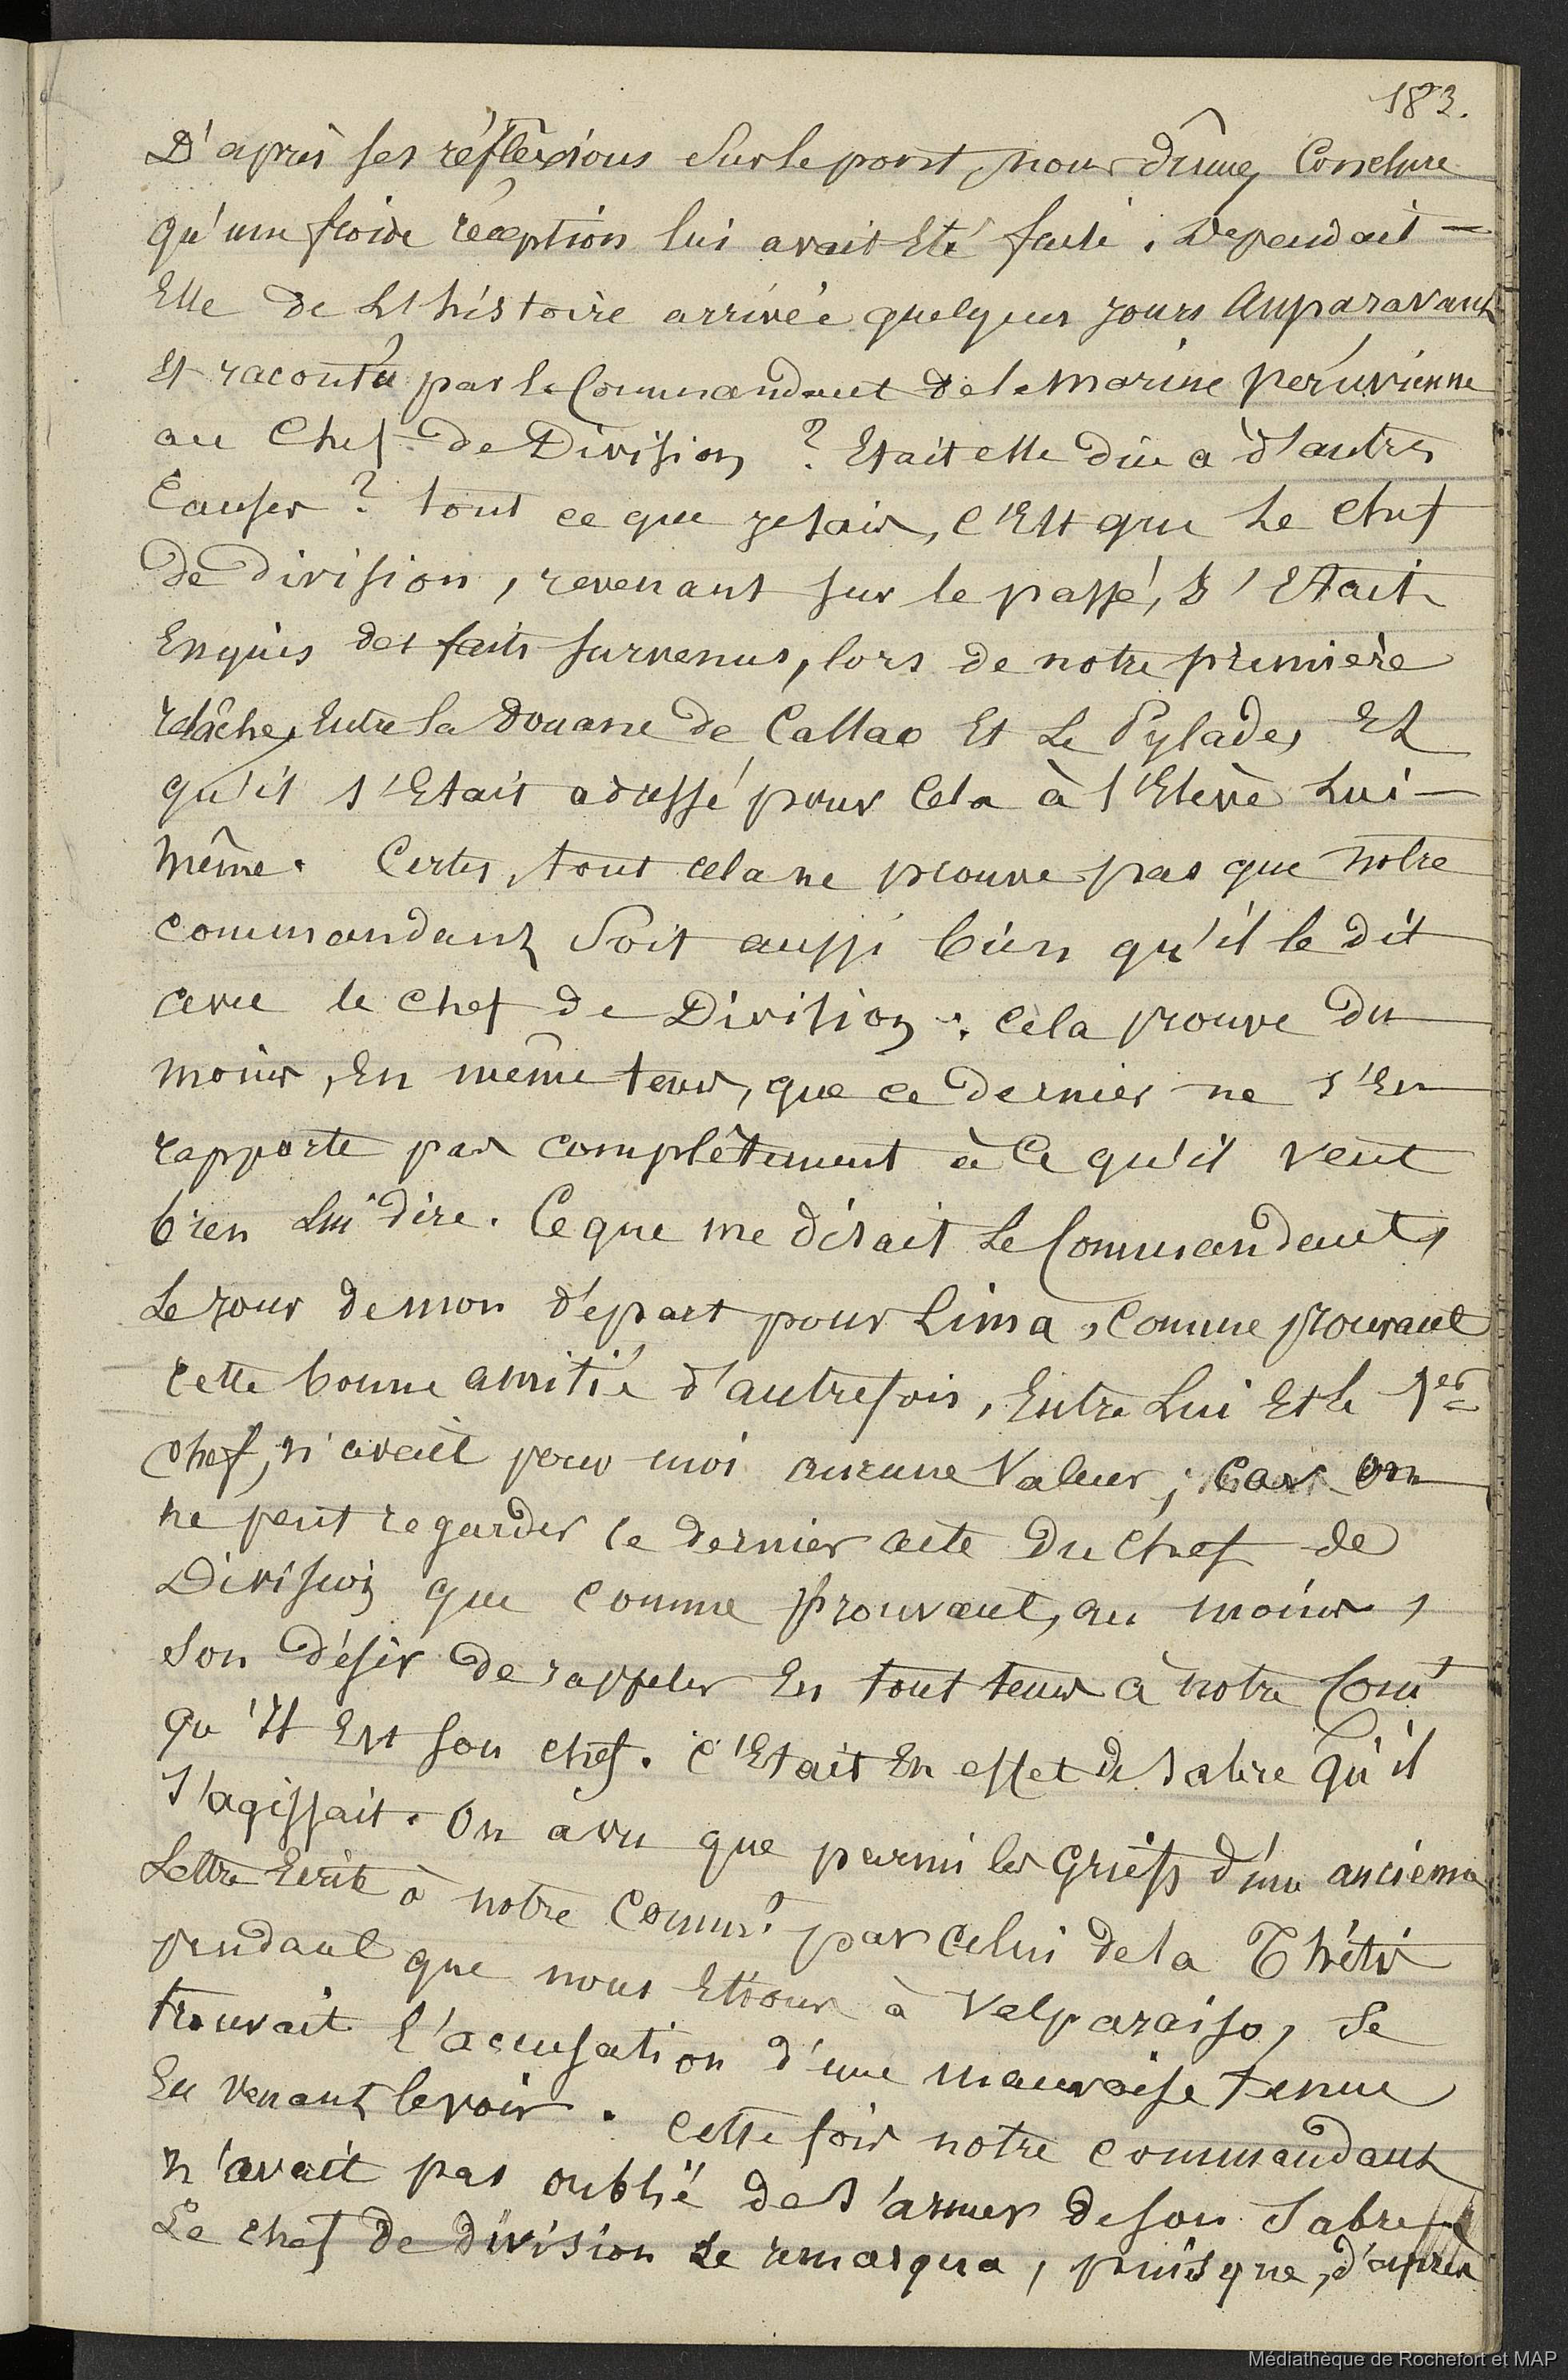 183.
D'après ses réflexions sur le pont, nous dûmes conclure
qu'une froide réception lui avait été faite. Dépendait-
Elle de L'histoire arrivée quelques jours Auparavant
Et racontée par le Commandant de la marine péruvienne
au Chef de Division ? Etait elle due à d'autres
Causes ? tout ce que je sais, c'Est que Le chef
de division, revenant sur le passé, s'Etait
Enquis des faits survenus, lors de notre première
relâche, Entre la Douane de Callao Et Le Pylade, Et
qu'il s'Etait adressé pour Cela à l'Elève Lui-
même. Certes, tout cela ne prouve pas que notre
commandant Soit aussi bien qu'il le dit
avec le chef de Division : cela prouve du
moins, En même tems, que ce dernier ne s'En
rapporte pas complètement à Ce qu'il veut
bien Lui dire. Ce que me disait Le Commandant,
Le jour de mon départ pour Lima, comme prouvant
cette bonne amitié d'autrefois, Entre Lui Et le 1er
chef, n'avait pour moi aucune Valeur ; car on
ne peut regarder le dernier acte du chef de
Division que comme prouvant, au moins,
son désir de rappeler En tout tems à notre Comt
qu'Il Est son chef. C'Etait En effet de sabre qu'il
s'agissait. On a vu que parmi les griefs d'une ancienne
Lettre Ecrite à notre Commt par celui de la Thétis
pendant que nous Etions à Valparaiso, se
trouvait l'accusation d'une mauvaise tenue
En venant le voir. Cette fois notre commandant
n'avait pas oublié de s'armer de son sabre
Le chef de division Le remarqua, puisque, d'après
Médiathèque de Rochefort et MAP